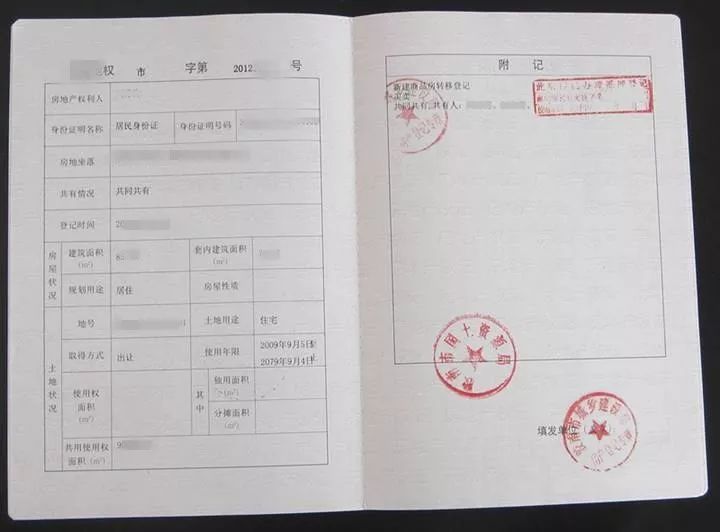 权 市 字第 2012 号
房地产权利人
身份证明名称 居民身份证 身份证明号码
房地坐落
共有情况 共同共有
登记时间 20
房屋状况 建筑面积(m²) 8 套内建筑面积(m²)
规划用途 居住 房屋性质
土地状况 地号 土地用途 住宅
取得方式 出让 使用年限 2009年9月5日至
2079年9月4日
使用权面积(m²) 其中 独用面积(m²)
分摊面积(m²)
共用使用权面积(m²) 9
附 记
新建商品房转移登记
买卖
共同共有,共有人:
市国土资源局
填发单位(
市城乡建设